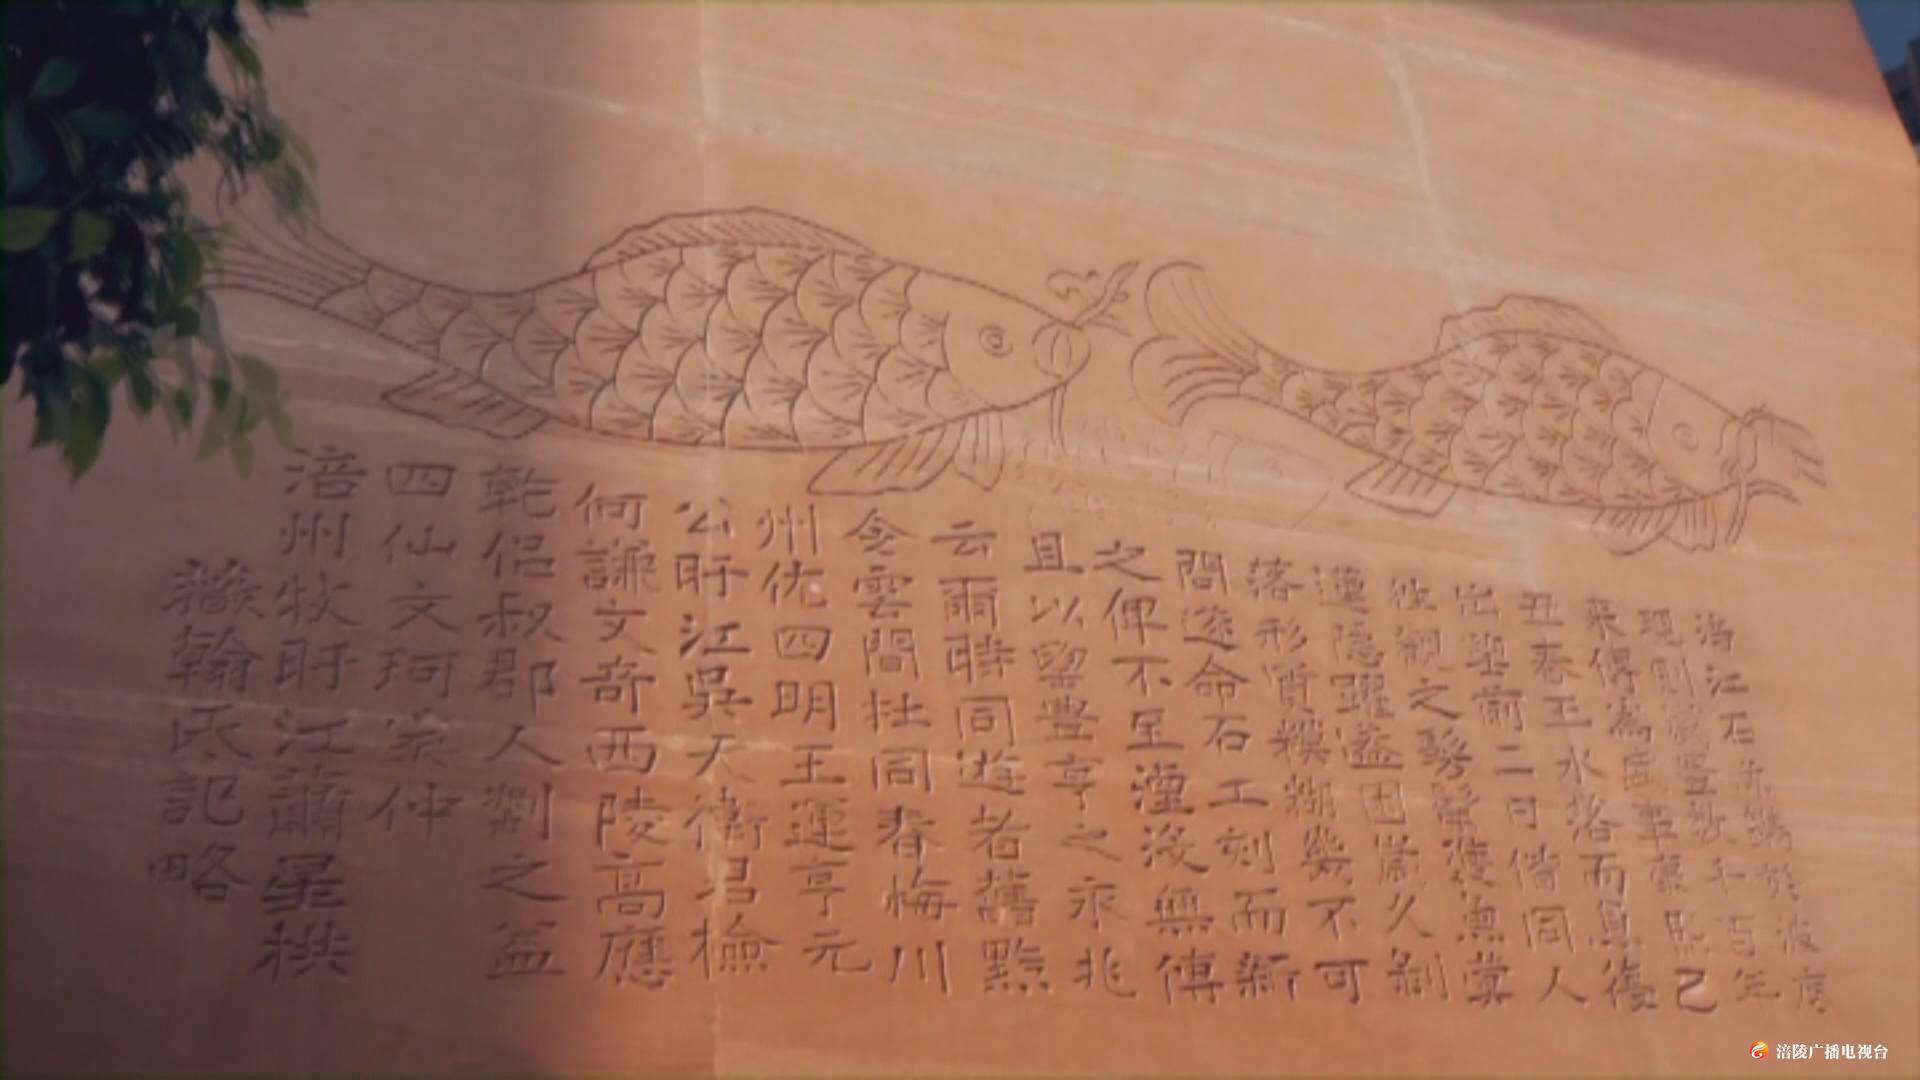 涪江石魚鐫於波底
現則歲豐數千百年
来傳為盛事康熙乙
丑春王水落而魚復
出望前二日偕同人
往觀之髣髴雙魚蓂
蓮隱躍蓋因歲久剝
落形質模糊幾不可
問遂命石工刻而新
之俾不至湮沒無傳
且以望豐亨之永兆
云爾時同遊者舊黔
令雲間杜同春梅川
州佐四明王運亨元
公盱江吳天
何謙文奇西陵高應
乾侶叔郡人劉之益
四仙文珂仲
涪州牧盱江蕭星栱
翰氏記略
涪陵广播电视台